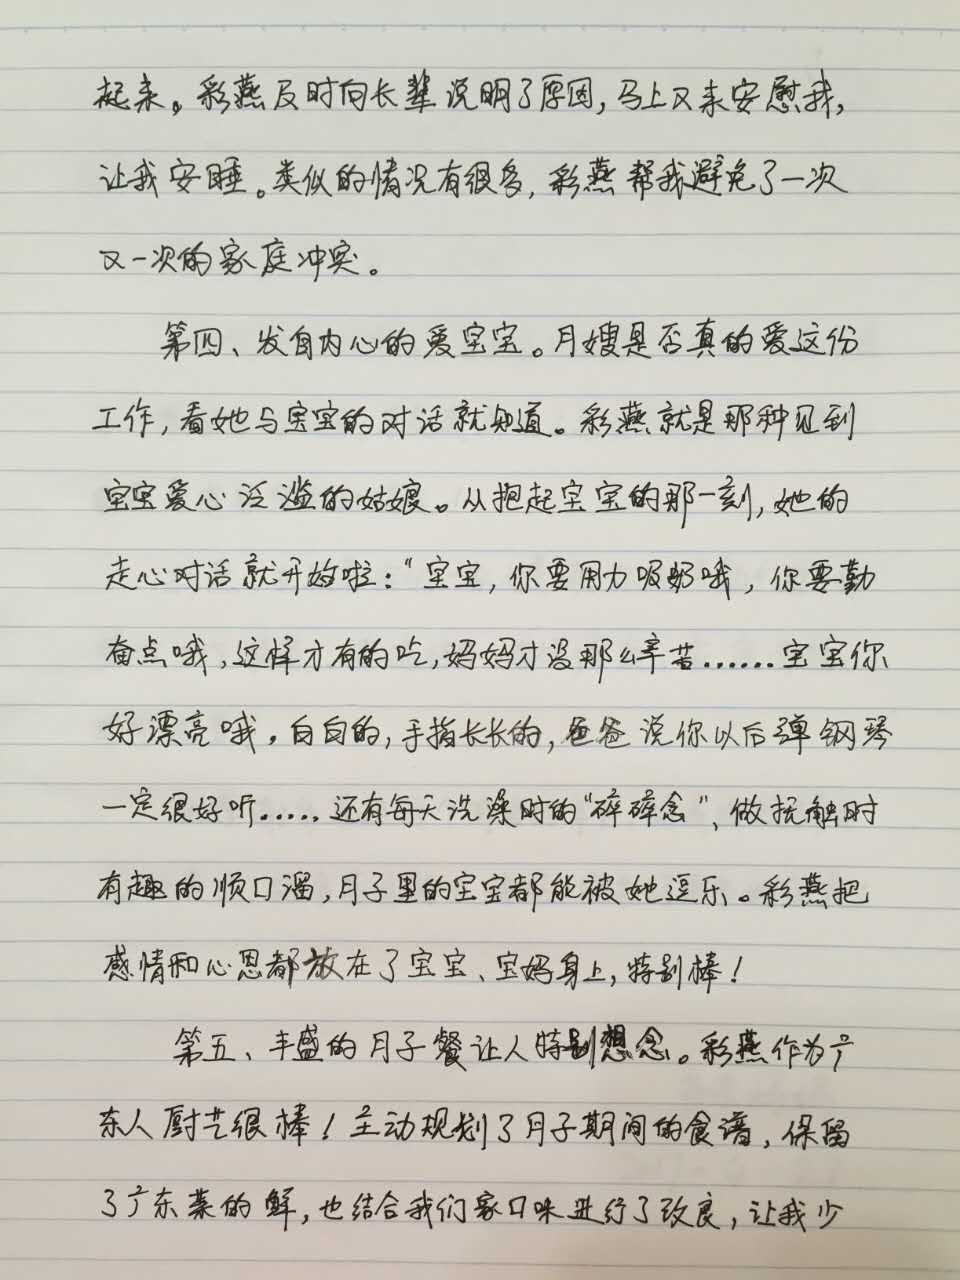 起来。彩燕及时向长辈说明了原因,马上又来安慰我,
让我安睡。类似的情况有很多,彩燕帮我避免了一次
又一次的家庭冲突。
第四、发自内心的爱宝宝。月嫂是否真的爱这份
工作,看她与宝宝的对话就知道。彩燕就是那种见到
宝宝爱心泛滥的姑娘。从抱起宝宝的那一刻,她的
走心对话就开始啦:“宝宝,你要用力吸奶哦,你要勤
奋点哦,这样才有的吃,妈妈才没那么辛苦……宝宝你
好漂亮哦,白白的,手指长长的,爸爸说你以后弹钢琴
一定很好听……还有每天洗澡时的“碎碎念”,做抚触时
有趣的顺口溜,月子里的宝宝都能被她逗乐。彩燕把
感情和心思都放在了宝宝、宝妈身上,特别棒!
第五、丰盛的月子餐让人特别想念。彩燕作为广
东人厨艺很棒!主动规划了月子期间的食谱,保留
了广东菜的鲜,也结合我们家口味进行了改良,让我少